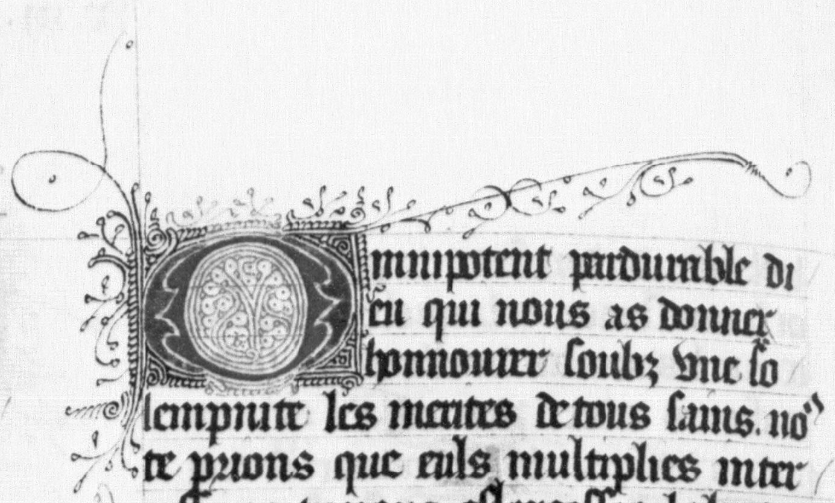 Omnipotent pardurable di
eu qui nous as donner
honnourer soubz vne so
lempnite les merites de tous sains. no9
te prions que euls multiplies inter